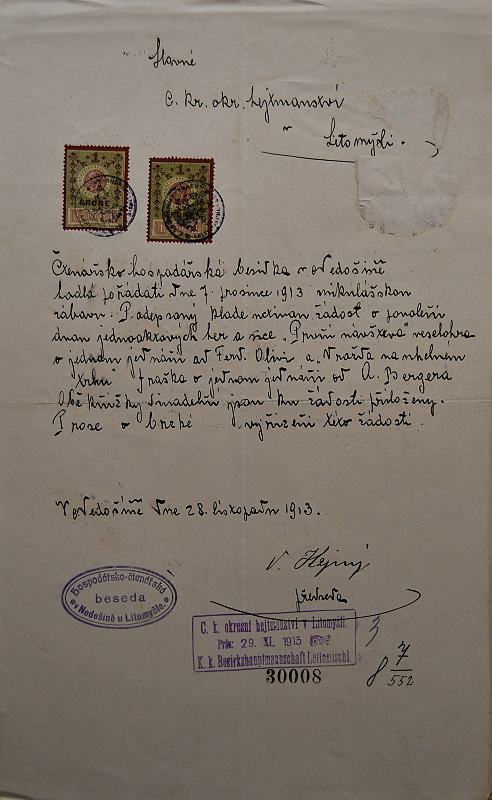 Slavné
C. kr. okr. hejtmanství
v
Litomyšli.
1
KRONE
1
KRONE
Čtenářsko hospodářská besídka v Nedošíně
hodlá pořádati dne 7. prosince 1913 mikulášskou
zábavu. Podepsaný klade uctivou žádost o povolení
dvou jednoaktových her a sice „První návštěva" veselohra
o jednom jednání od Ferd. Olivi a „Vražda na uhelném
trhu" fraška o jednom jednání od A. Bergera
Obě knížky divadelní jsou ku žádosti přiloženy.
Prose o brzké vyřízení této žádosti.
V Nedošíně dne 28. listopadu 1913.
V. Hejný
předseda
Hospodářsko-čtenářská
beseda
v Nedošíně u Litomyšle.
C. k. okresní hejtmanství v Litomyšli.
Präs: 29. XI. 1913
K. k. Bezirkshauptmannschaft Leitomischl.
30008
3
8 7
552